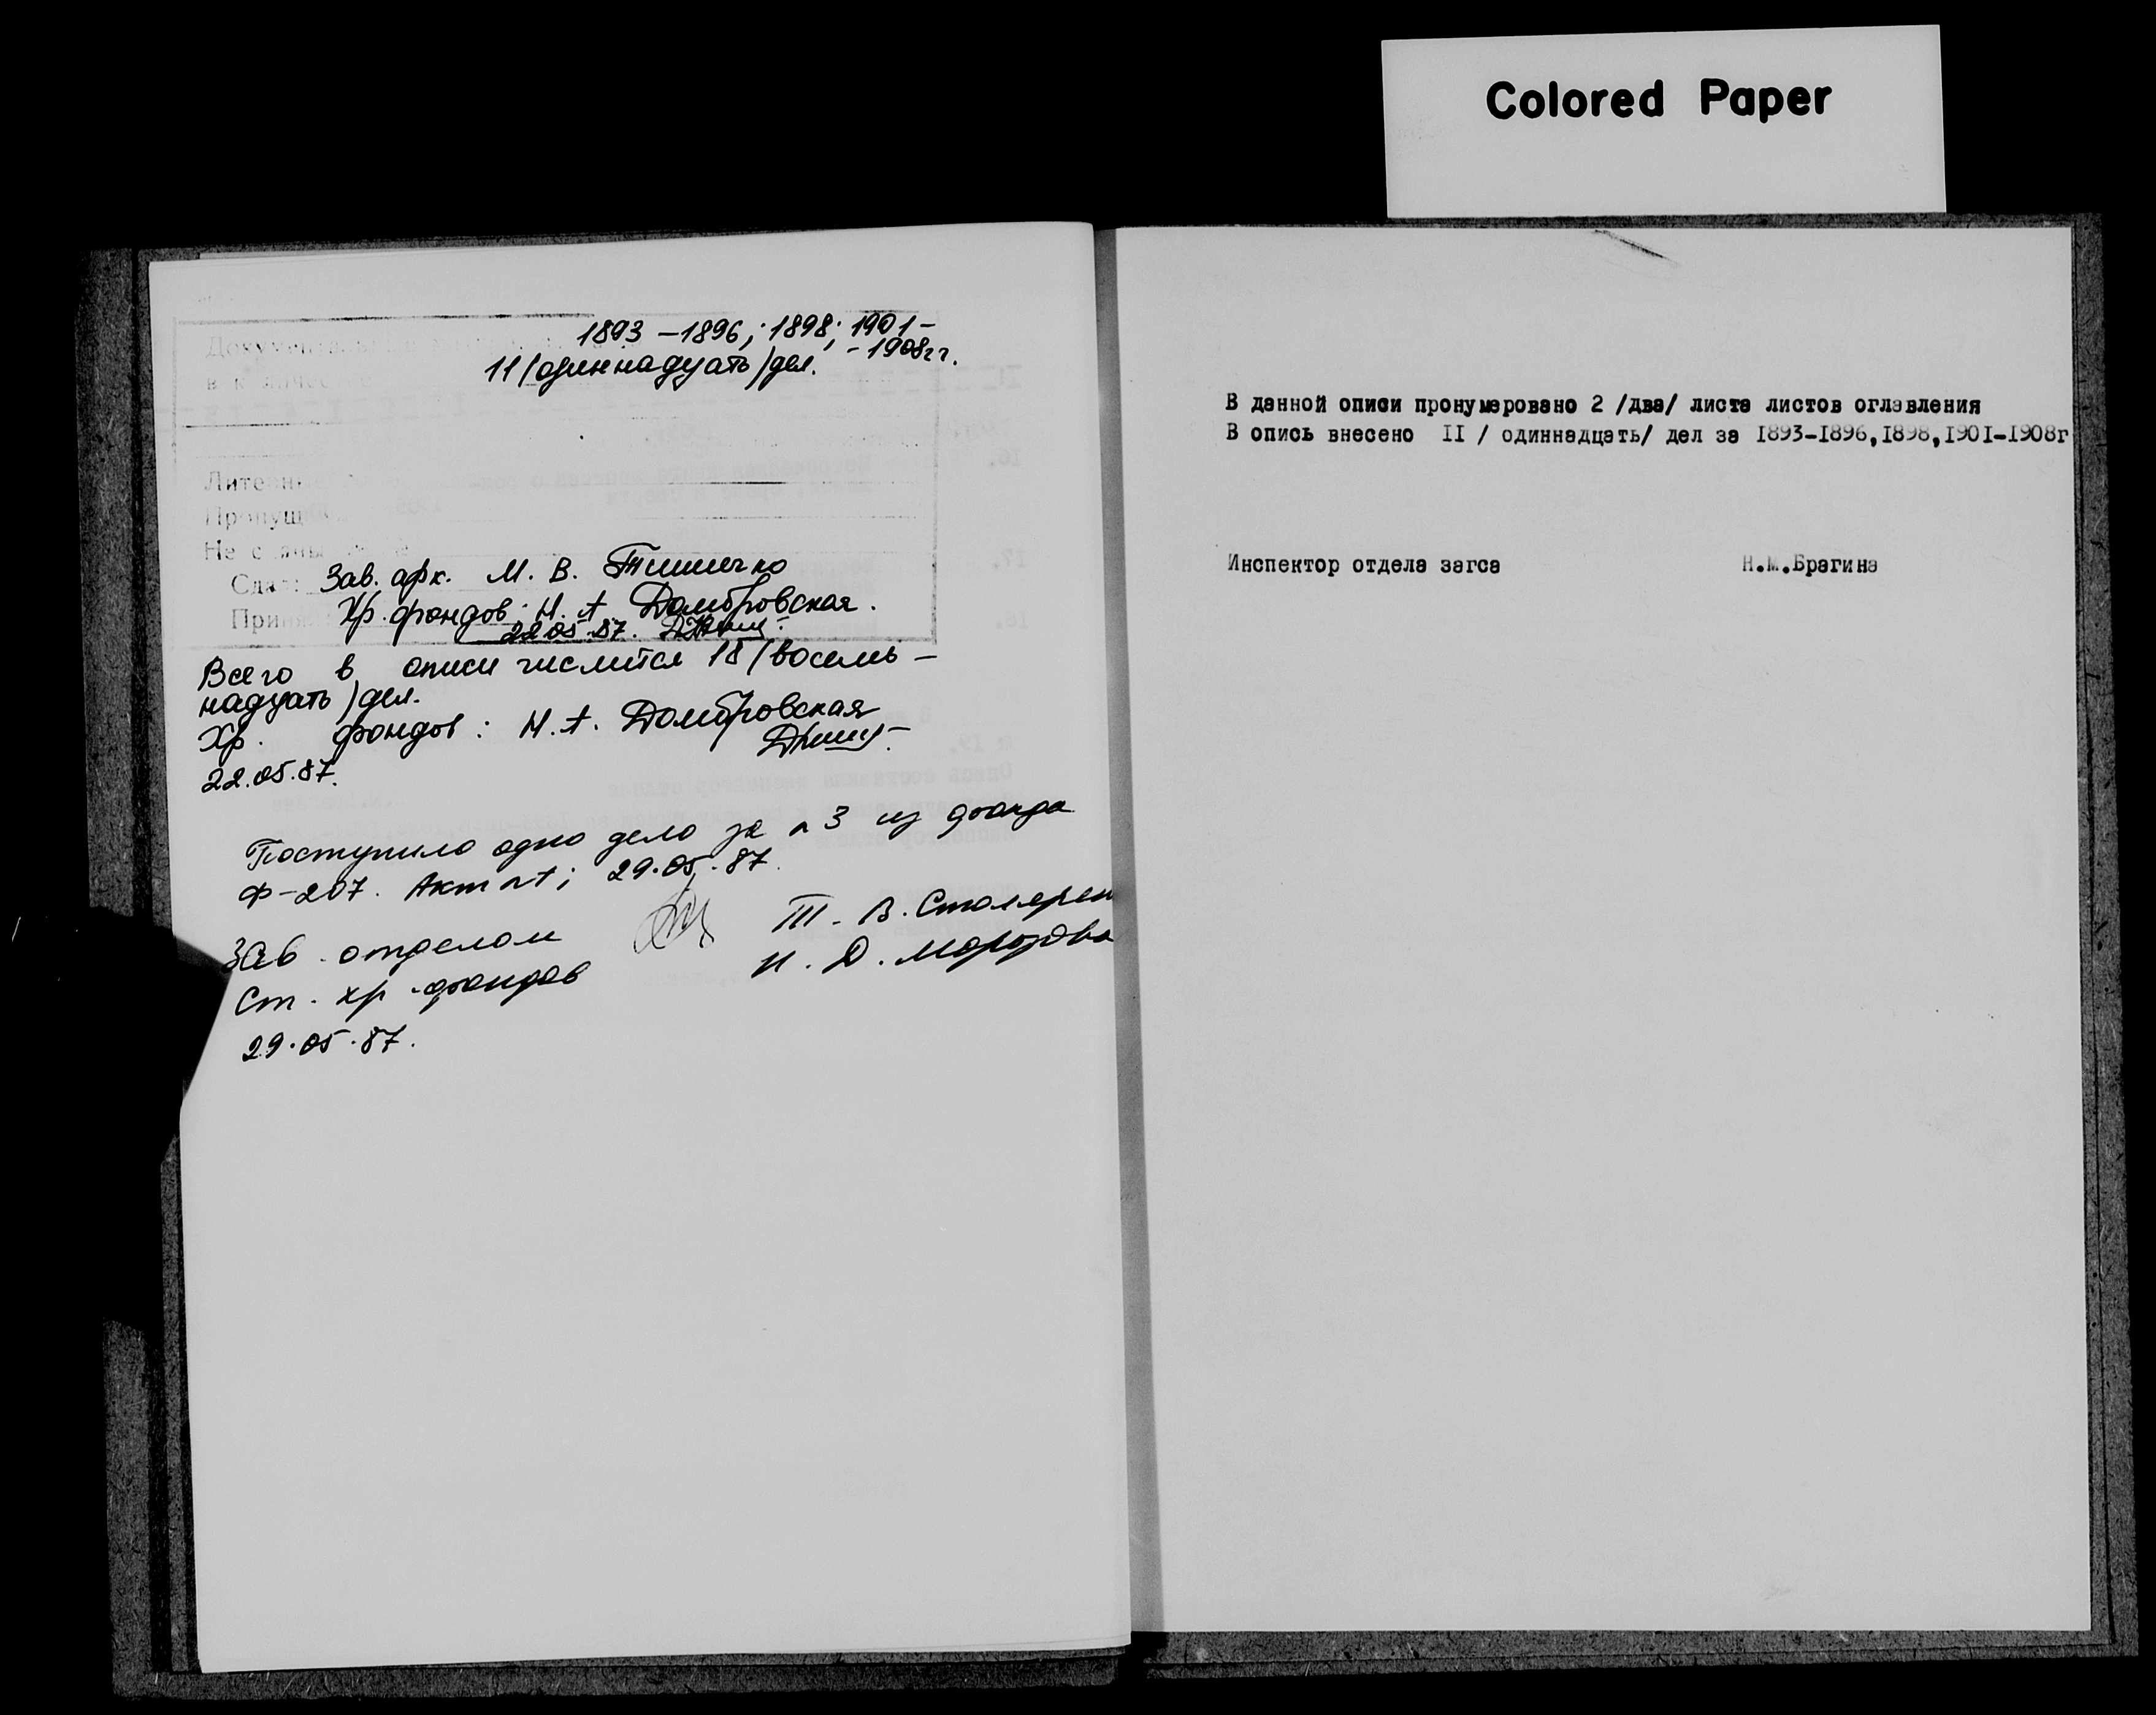 Colored Paper
Документы
в количестве
1893 – 1896; 1898; 1901 –
– 1908 гг.
11 (одиннадцать) дел.
Литерных
Пропущ
Не с
Сдал: Зав. арх. М. В.
Принял Хр. фондов: Н. А. Домбровская.
22.05.87.
Всего в описи числится 18 (восемь –
надцать) дел.
Хр. фондов: Н. А. Домбровская
22.05.87.
Поступило одно дело за № 3 из фонда
Ф-207. Акт № 1; 29.05.87.
Зав. отделом Т. В. Столярен
Ст. хр. фондов Н. Д. Морозова
29.05.87.
В данной описи пронумеровано 2 /два/ листа листов оглавления
В опись внесено II / одиннадцать/ дел за I893-I896,I898,I90I-I908г
Инспектор отдела загса Н.М.Брагина